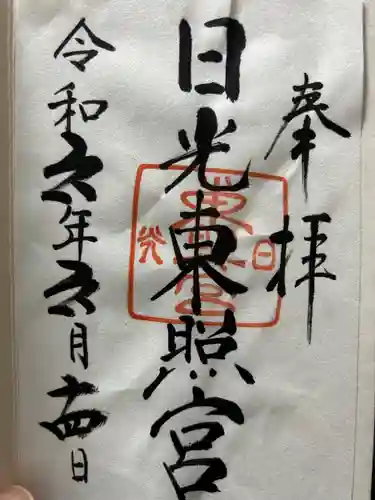 奉拝
日光東照宮
令和六年六月十四日